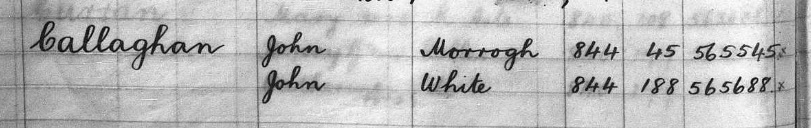 Callaghan John Morrogh 844 45 565545x
John White 844 188 565688.x